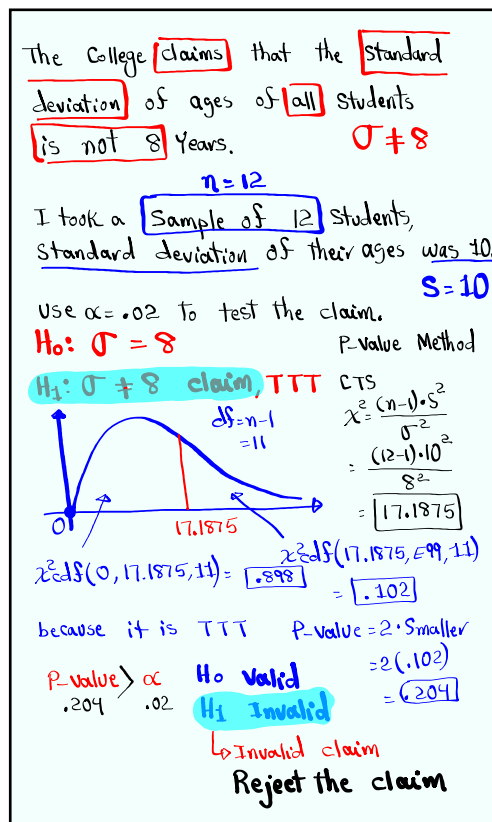 The College claims that the standard
deviation of ages of all students
is not 8 Years. σ ≠ 8
n = 12
I took a Sample of 12 Students,
Standard deviation of their ages was 10.
S = 10
Use α = .02 To test the claim.
H₀: σ = 8
P-Value Method
H₁: σ ≠ 8 claim, TTT
CTS
χ² = (n-1)·S² / σ²
df = n-1
= 11
= (12-1)·10² / 8²
= 17.1875
0
17.1875
χ²cdf(0, 17.1875, 11) = .898
χ²cdf(17.1875, E99, 11)
= .102
because it is TTT
P-Value = 2 · Smaller
= 2(.102)
= .204
P-Value > α
.204 .02
H₀ Valid
H₁ Invalid
↳ Invalid claim
Reject the claim